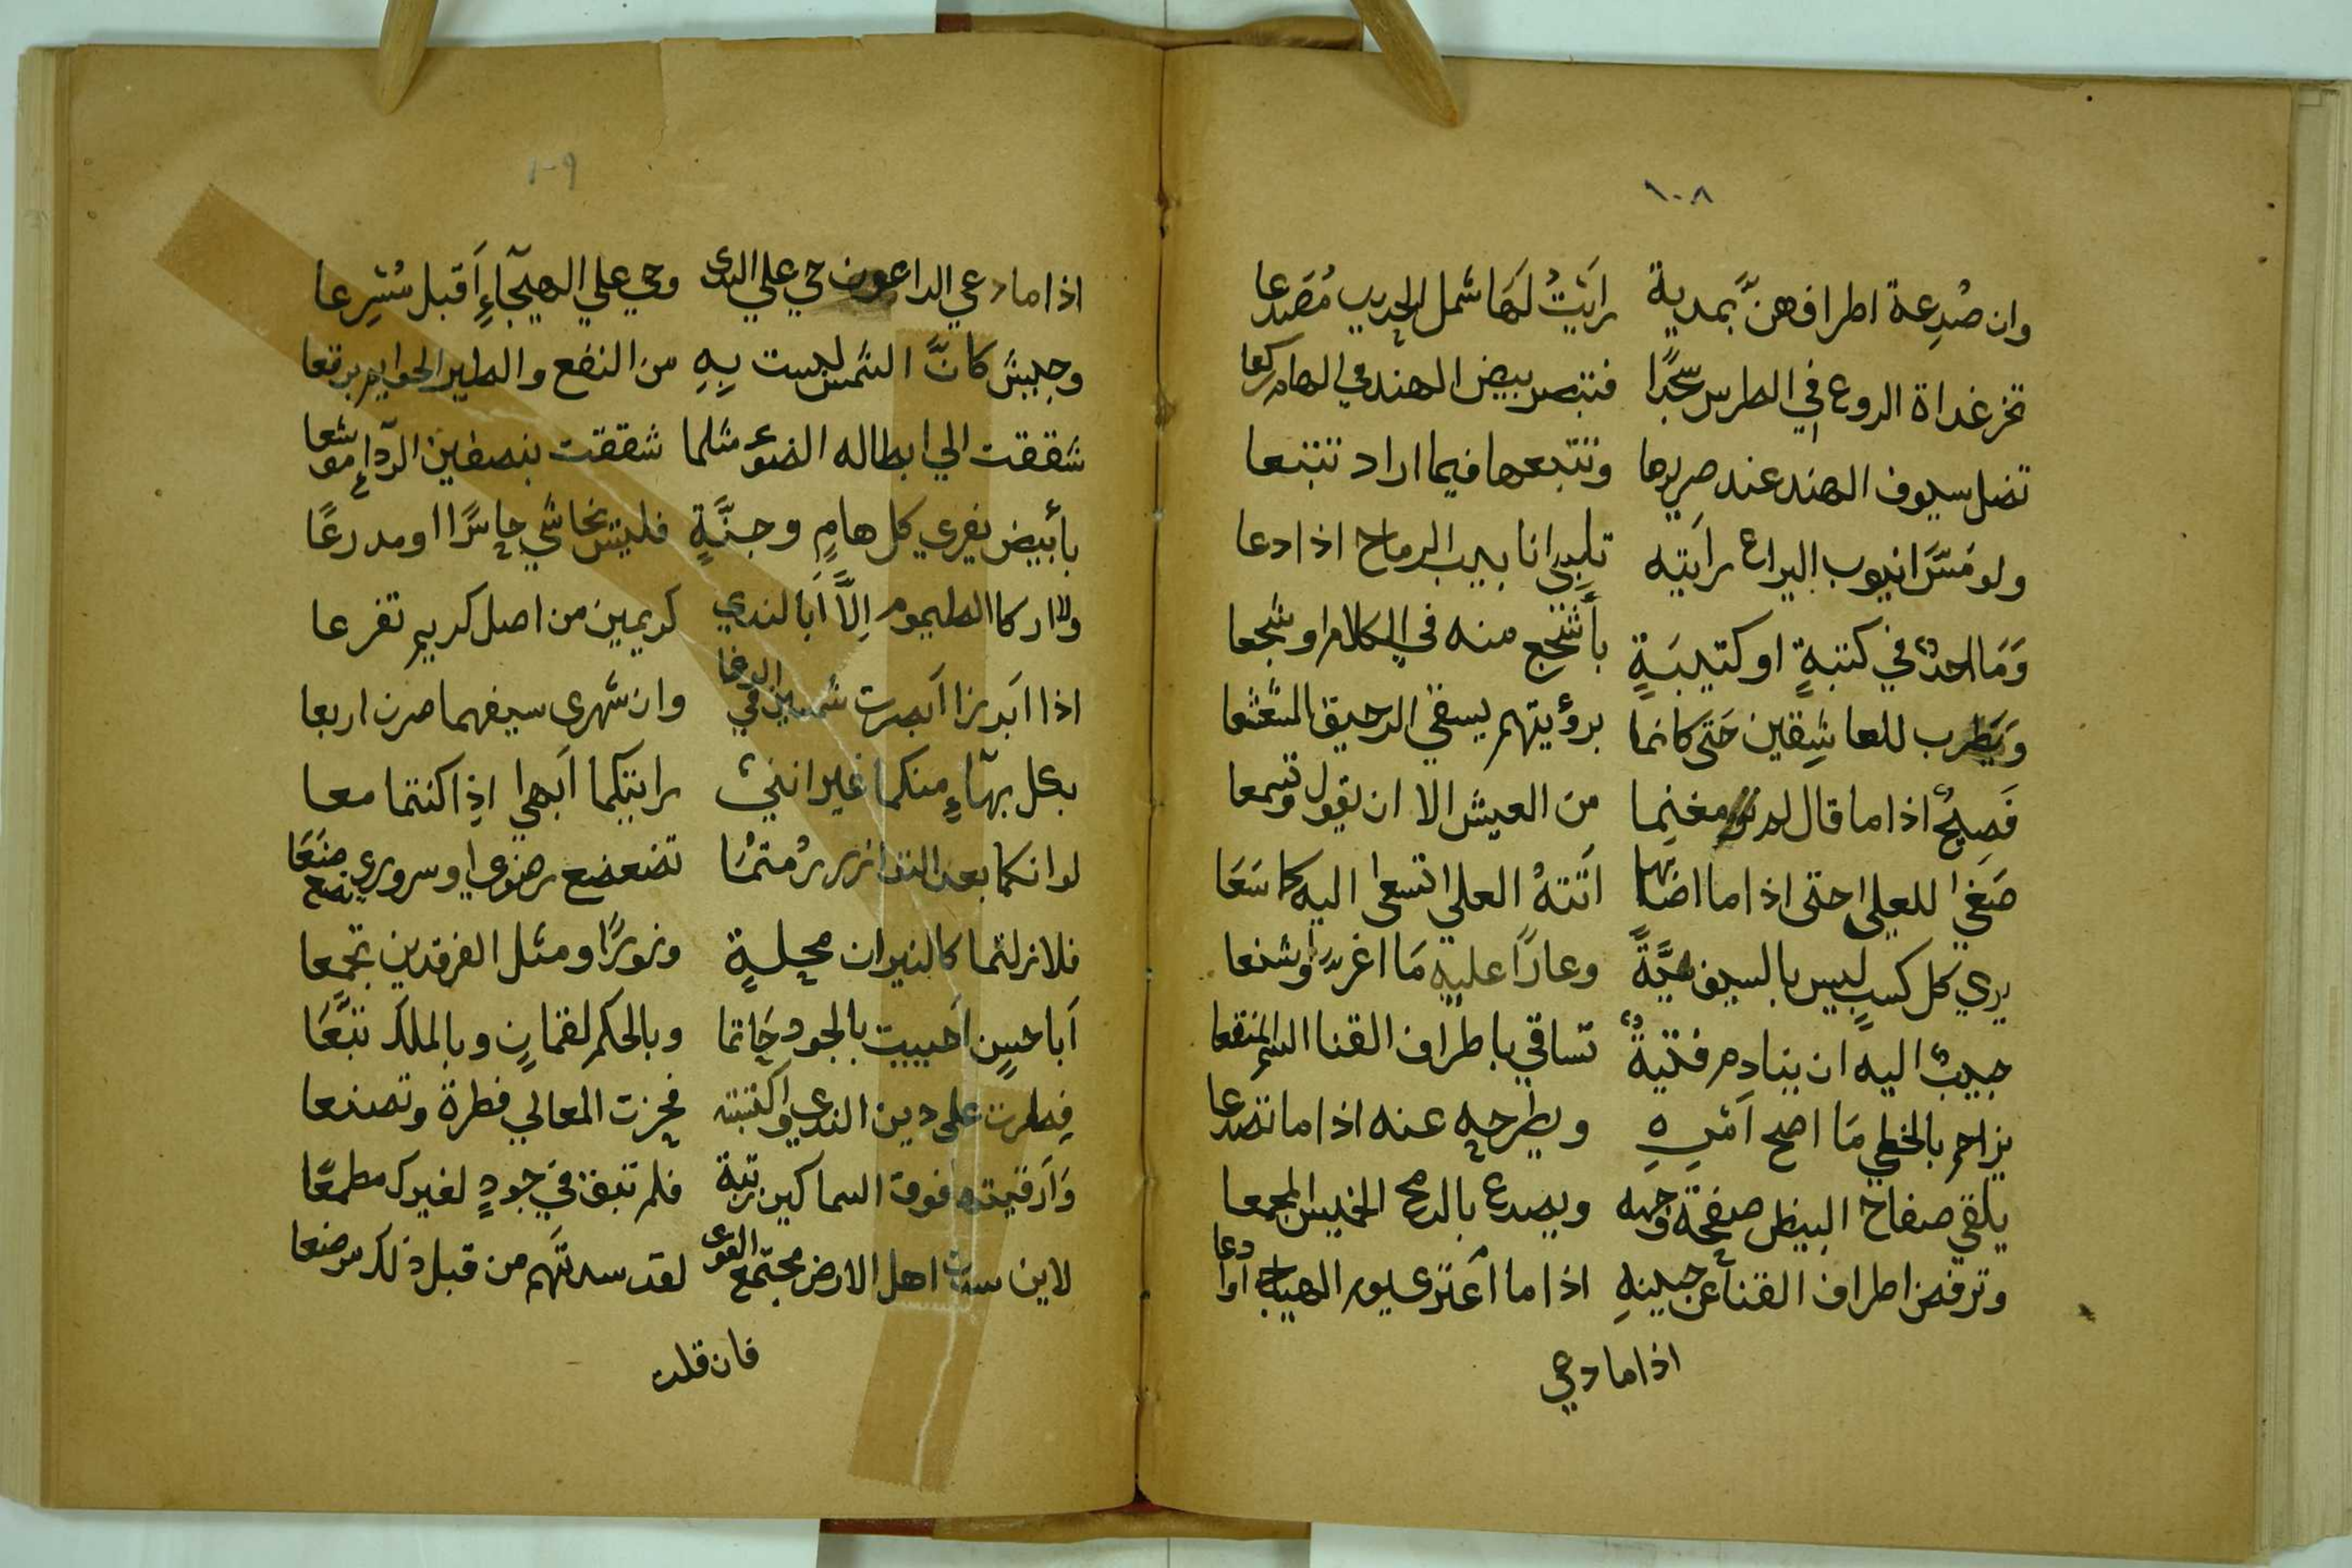 ١٠٨
وان صُدِعة اطرافهنَّ بمدية رايتُ لها شمل الحديد مُصَدعا
تخر غداة الروع في الطرس سجّدًا فتبصر بيض الهند في الهام ركعا
تضل سيوف الهند عند صريرها وتتبعها فيما اراد تتبعا
ولو مَسَّ انبوب اليراع رايته تلبى انابيب الرماح اذا دعا
وَمَا احدٌ في كتبةٍ او كتيبَةٍ بأشجع منه في الكلام او شجعا
وَيَطرب للعاشِقين حَتى كانما برؤيتهم يسقي الرحيق المشعشعا
فَصِيحٌ اذا ما قال لم مغنِما من العيش الا ان يقول وتسمعا
صَغي للعلى حتى اذا ما اضابها اَتتهُ العلي تسعى اليه كما سَعَا
يري كل كسبٍ ليس بالسيف هيَّةً وعارًا عليه مَا اغر وشنعا
حبيبٌ اليه ان ينادم فتيةٌ تساقي باطراف القنا السم المنقعا
يزاحم بالخطي مَا اصح اَمرِهِ ويطرحه عنه اذا ما تصدعا
يلقي صفاح البيض صفحة وجهه ويصدع بالرمح الخميس المجمعا
وترفض اطراف القنا عن جبينهِ اذا ما اَعتزى يوم الهياج او ادعا
اذا ما دعي
١٠٩
اذا ما دعي الداعون حي علي الندى وحي علي الهيجآءِ اَقبل مُسْرِعا
وجيش كانَّ الشمس لبست بِهِ من النقع والطير الحوايم برقعا
شققت الي ابطاله الضوء مثلما شققت بنصفين الردآء موشعا
بأبيض يفري كل هامٍ وجنَّةٍ فليس يخاشي حاسرًا او مدرعًا
ولا ادركا الطيموم اِلاَّ اَبا الندي كريمين من اصل كريم تفرعا
اذا اَبرزا اَبصرت شمسين في الوغا وان شهرى سيفهما صرن اربعا
بكل بهآءٍ منكما غير انني رايتكما اَبهي اذِا كنتما معا
لو انكما بعد النزر رُمتمُا تضعضع رضوي او سروري تضعضَعَا
فلا زلتما كالنيران محلةٍ ونورًا ومثل الفرقدين تجمعا
اَبا حسٍن اَحييت بالجود حَاتما وبالحكم لقمانٍ وبالملك تبَّعَا
فِطرت على دين الندي واَكتبته فحزت المعالي فطرة وتصنعا
وَاَرقيته فوق السماكين رتبة فلم تبق في جودٍ لغيرك مطمعًا
لاين سدت اهل الارض مجتمع القوى لقد سدتَهم من قبل ذلك مرضعا
فان قلت